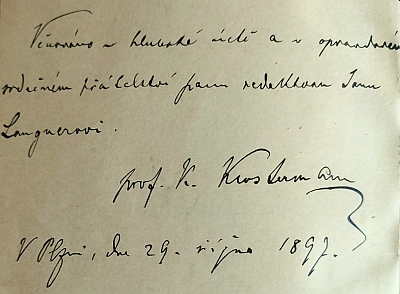 Věnováno v hluboké úctě a v opravdovém
srdečném přátelství panu redaktoru Janu
Langnerovi.
prof. K. Klostermann
V Plzni, dne 29. října 1897.